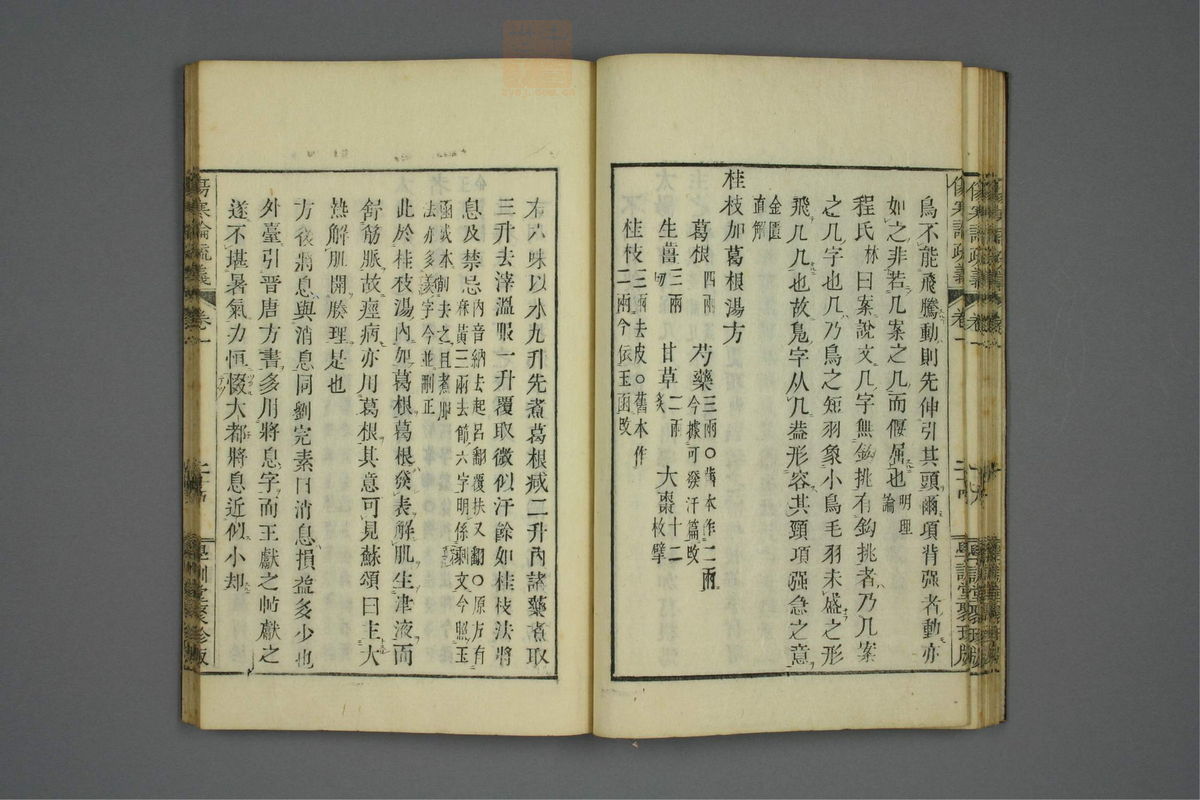 鳥不能飛騰動則先伸引其頭爾項背强者動亦
如之非若几案之几而偃屈也明理
論
程氏林曰案說文几字無鈎挑有鈎挑者乃几案
之几字也几乃鳥之短羽象小鳥毛羽未盛之形
飛几几也故鳧字从几葢形容其頸項强急之意
金匱
直解
桂枝加葛根湯方
葛根四兩 芍藥三兩○舊本作二兩
今據可發汗篇改
生薑三兩
切 甘草二兩
炙 大棗十二
枚擘
桂枝三兩去皮○舊本作
二兩今依玉函改
右六味以水九升先煮葛根減二升內諸藥煮取
三升去滓溫服一升覆取微似汗餘如桂枝法將
息及禁忌內音納去起呂翻覆扶又翻○原方有
麻黃三兩去節六字明係剩文今照玉
函成本刪去之且煮服
法亦多沫字今並刪正
此於桂枝湯內加葛根葛根發表解肌生津液而
舒筋脈故痙病亦用葛根其意可見蘇頌曰主大
熱解肌開腠理是也
方後將息與消息同劉完素曰消息損益多少也
外臺引晉唐方書多用將息字而王獻之帖獻之
遂不堪暑氣力恒惙大都將息近似小却
傷寒論疏義
卷一
學訓堂聚珍版